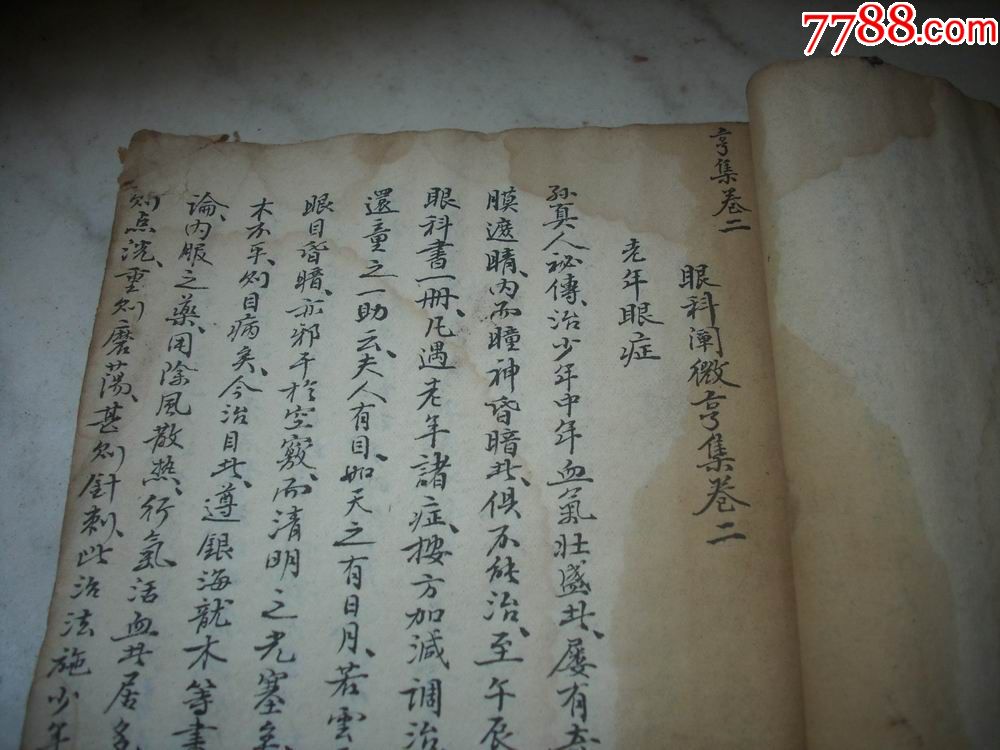 7788.com
亨集卷二
眼科阐微亨集卷二
老年眼症
孙真人秘傳、治少年中年血氣壮盛者、屡有
膜遮睛、内而瞳神昏暗者、俱不能治、至午辰
眼科書一册、凡遇老年諸症、按方加減調治
還童之一助云、夫人有目、如天之有日月、若雲
眼目昏暗、亦邪干於空竅、而清明之光塞
木不平、则目病矣、今治目者、遵銀海龍木等書
論、内服之藥、用除風散热、行氣活血者居多
则点洗、重则磨蕩、甚则針刺、此治法施少年